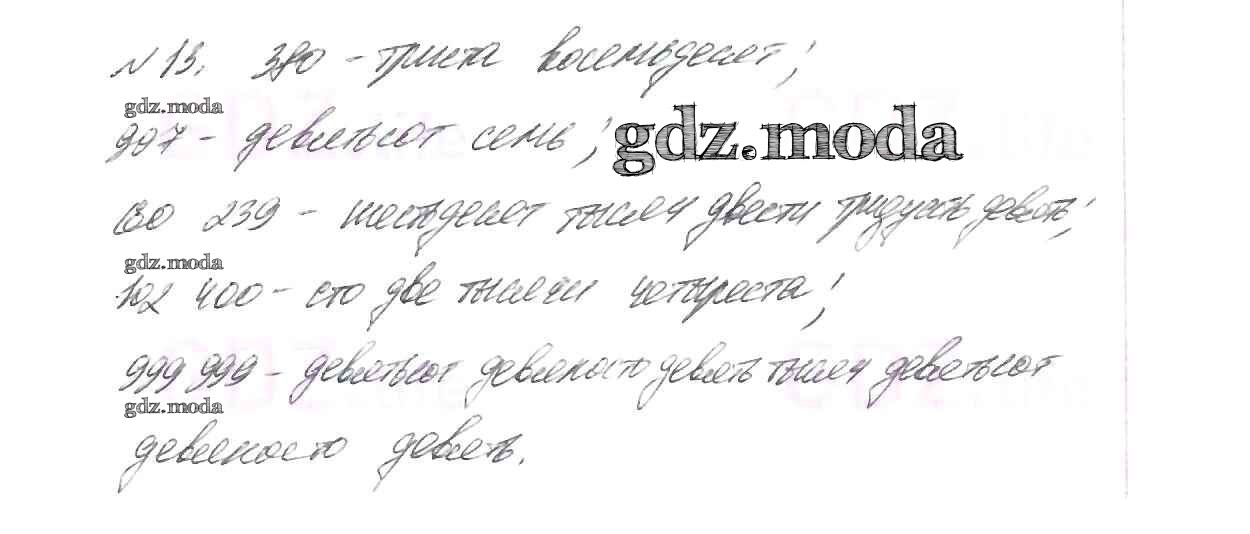 №13. 380 – триста восемьдесят;
gdz.moda
907 – девятьсот семь; gdz.moda
60 239 – шестьдесят тысяч двести тридцать девять;
gdz.moda
102 400 – сто две тысячи четыреста;
999 999 – девятьсот девяносто девять тысяч девятьсот
gdz.moda
девяносто девять.